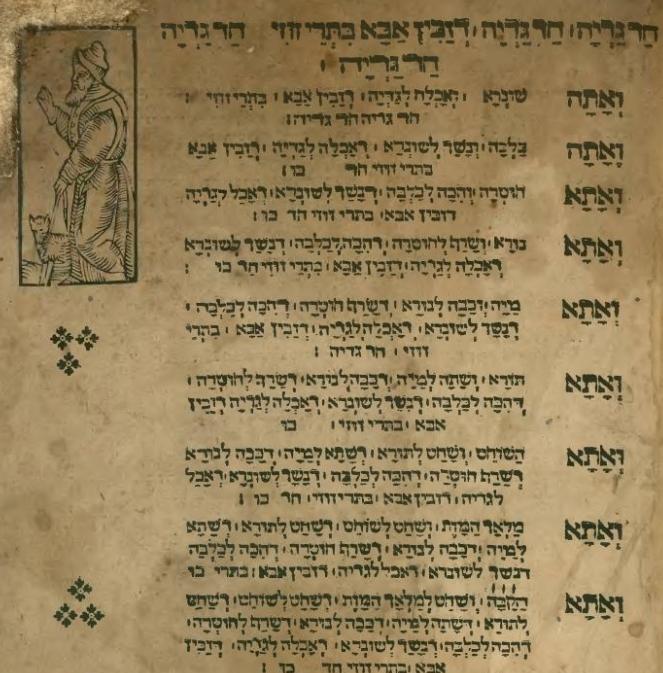 חד גדיה ׃ חד גדיה ׃ דזבין אבא בתרי זוזי חד גדיה
חד גדיה ׃
ואתה שונרא ׃ ואכלה לגדיה ׃ דזבין אבא ׃ בתרי זוזי ׃
חד גדיה חד גדיה ׃
ואתה כלבה ׃ ונשך לשונרא ׃ דאכלה לגדיה ׃ דזבין אבא
בתרי זוזי חד כו ׃
ואתא חוטרה ׃ והכה לכלבה ׃ דנשך לשונרא ׃ דאכל לגדיה
דזבין אבא ׃ בתרי זוזי חד כו ׃
ואתא נורא ׃ ושרף לחוטרה ׃ דהכה לכלבה ׃ דנשך לשונרא
דאכלה לגדיה ׃ דזבין אבא ׃ בתרי זוזי חד כו ׃
ואתא מיה ׃ וכבה לנורא ׃ דשרף חוטרה ׃ דהכה לכלבה ׃
דנשך לשונרא ׃ דאכלה לגדיה ׃ דזבין אבא ׃ בתרי
זוזי ׃ חד גדיה ׃
ואתא תורא ׃ ושתה למיה ׃ דכבה לנורא ׃ דשרף לחוטרה ׃
דהכה לכלבה ׃ דנשך לשונרא ׃ דאכלה לגדיה דזבין
אבא ׃ בתרי זוזי ׃ כו
ואתא השוחט ׃ ושחט לתורא ׃ דשתא למיה ׃ דכבה לנורא
דשרף חוטרה ׃ דהכה לכלבה ׃ דנשך לשונרא ׃ דאכל
לגדיה ׃ דזבין אבא ׃ בתרי זוזי ׃ חד כו ׃
ואתא מלאך המות ׃ ושחט לשוחט ׃ דשחט לתורא ׃ דשתא
למיה ׃ דכבה לנורא ׃ דשרף חוטרה ׃ דהכה לכלבה
דנשך לשונרא ׃ דאכל לגדיה ׃ דזבין אבא ׃ בתרי כו
ואתא הקבה ׃ ושחט למלאך המות ׃ דשחט לשוחט ׃ דשחט
לתורא ׃ דשתה למיה ׃ דכבה לנורא ׃ דשרף לחוטרה ׃
דהכה לכלבה ׃ דנשך לשונרא ׃ דאכלה לגדיה ׃ דזבין
אבא ׃ בתרי זוזי חד כו ׃